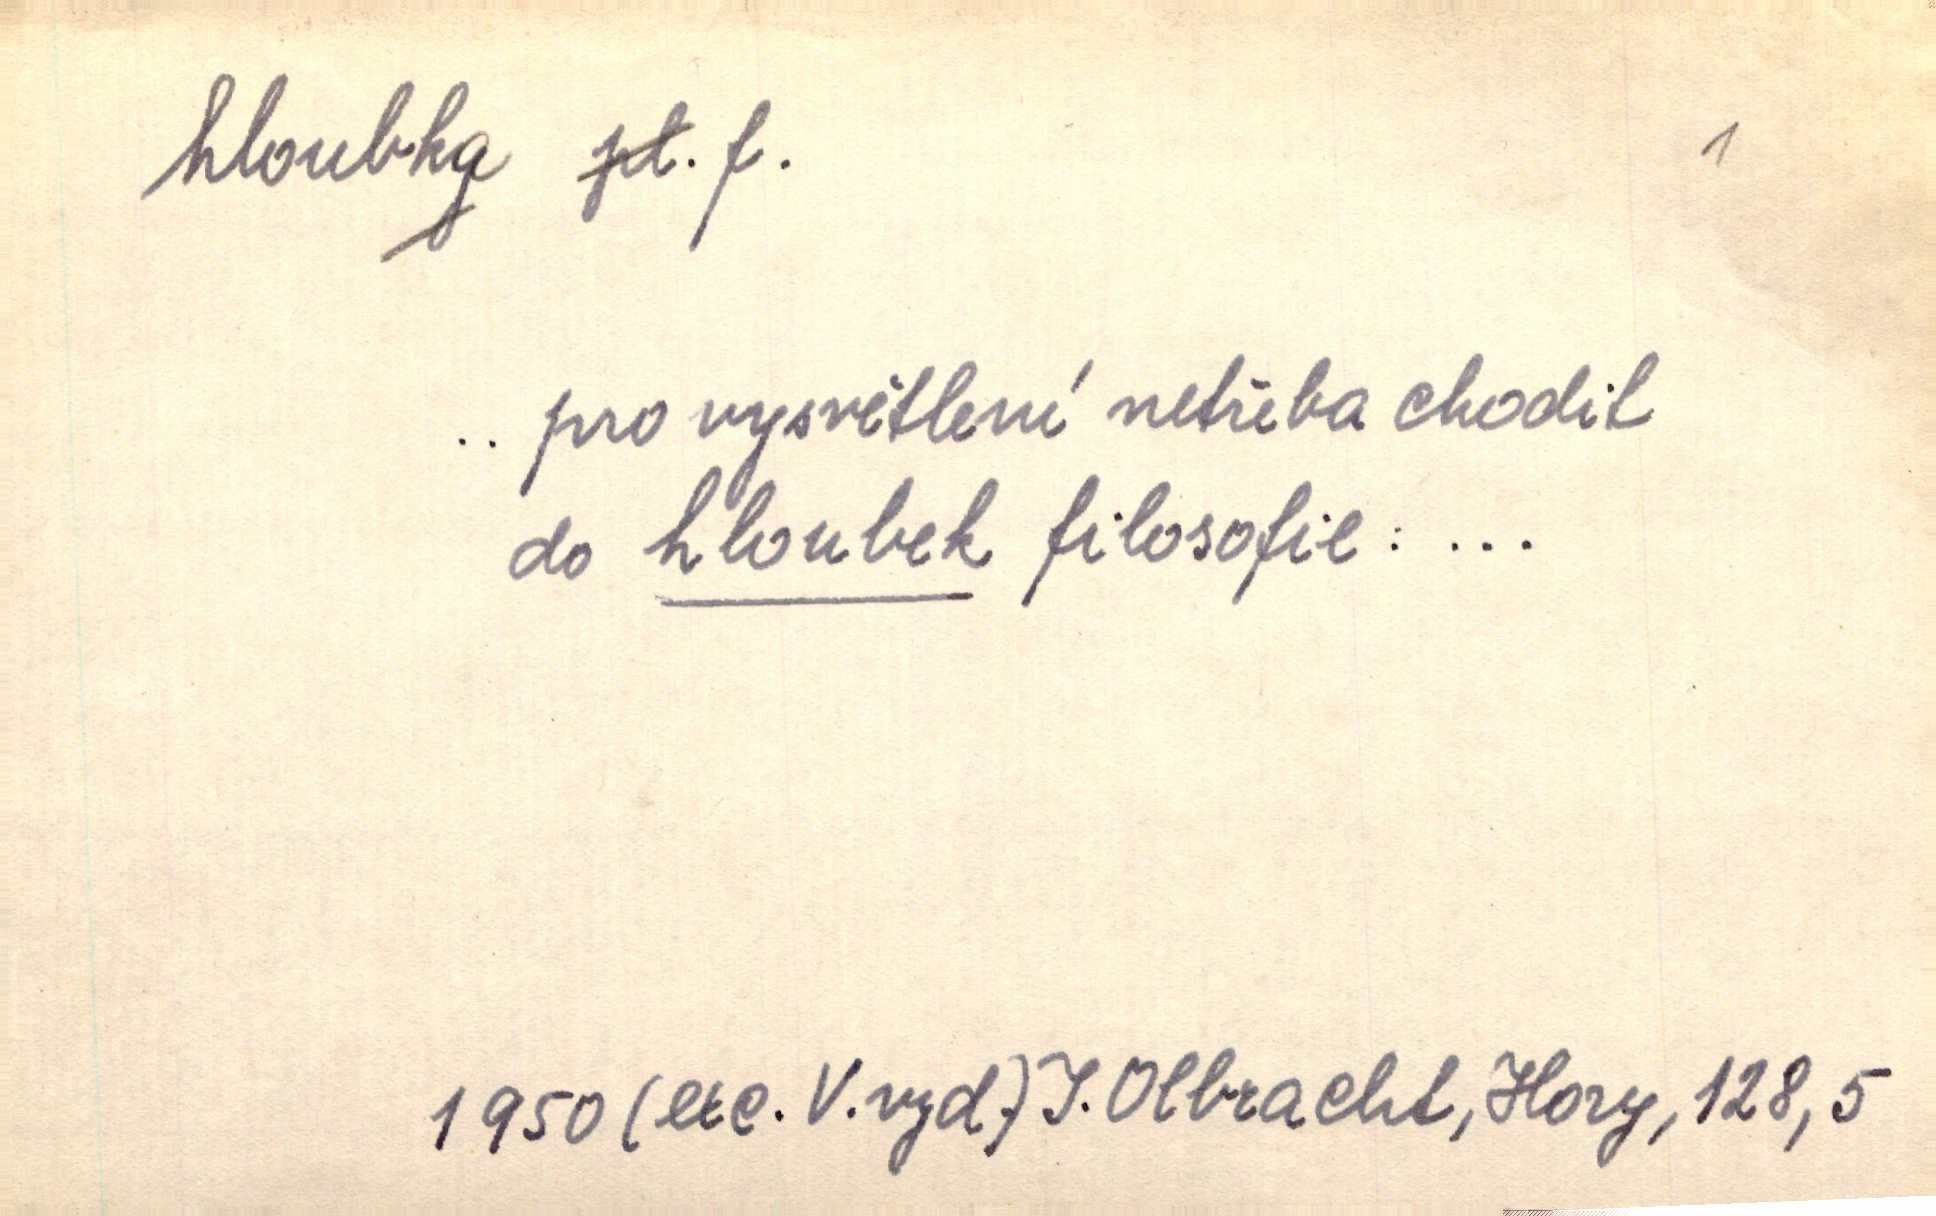 hloubka pl. f.
1
.. pro vysvětlení netřeba chodit
do hloubek filosofie: ...
1950 (exc. V. vyd.) I. Olbracht, Hory, 128, 5